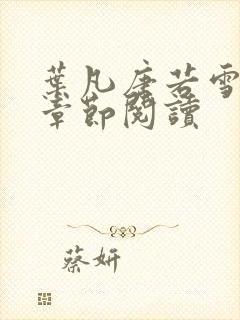 葉凡唐若雪
章節閱讀
蔡妍